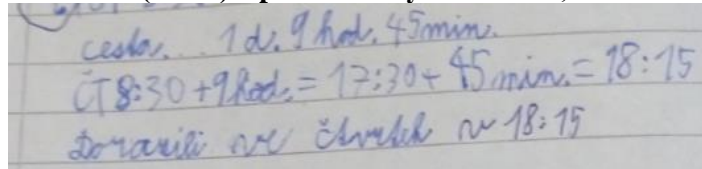 cesta... 1 d. 9 hod. 45 min.
ČT 8:30 + 9 hod. = 17:30 + 45 min. = 18:15
Dorazili ve čtvrtek v 18:15